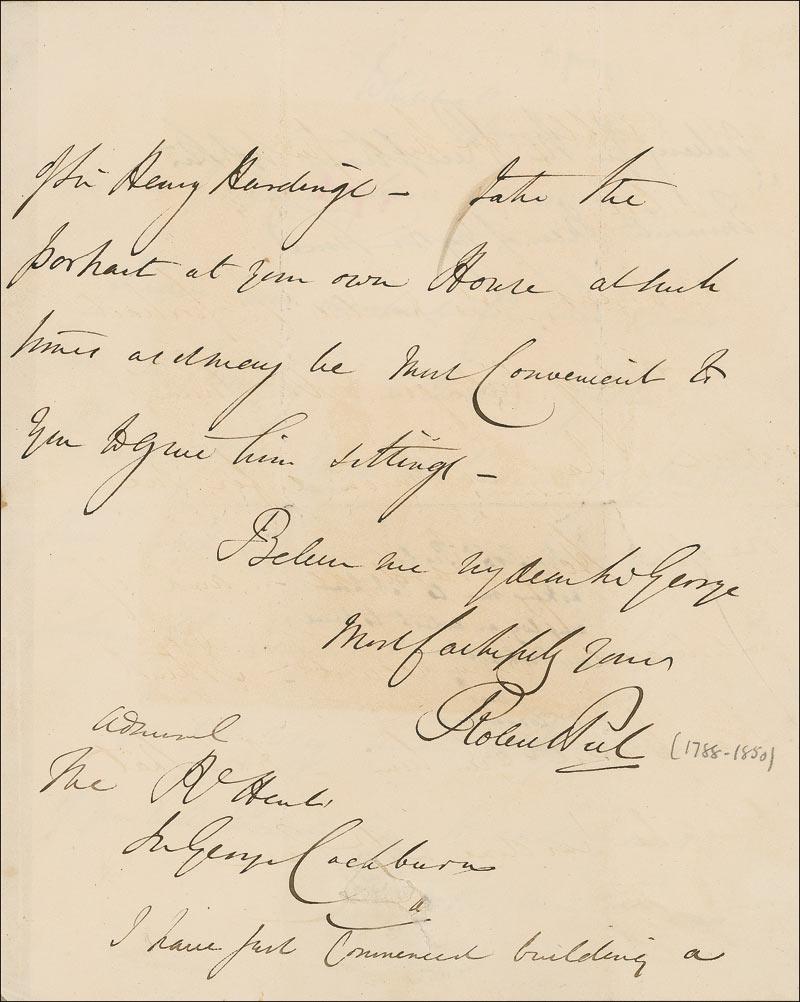 of Sir Henry Hardinge – take the
portrait at your own House at such
times as it may be most Convenient to
you to give him sittings –
Believe me my dear Sir George
Most faithfully yours
Robert Peel (1788-1850)
Admiral
The Rt Honble
Sir George Cockburn
a
I have just Commenced building a